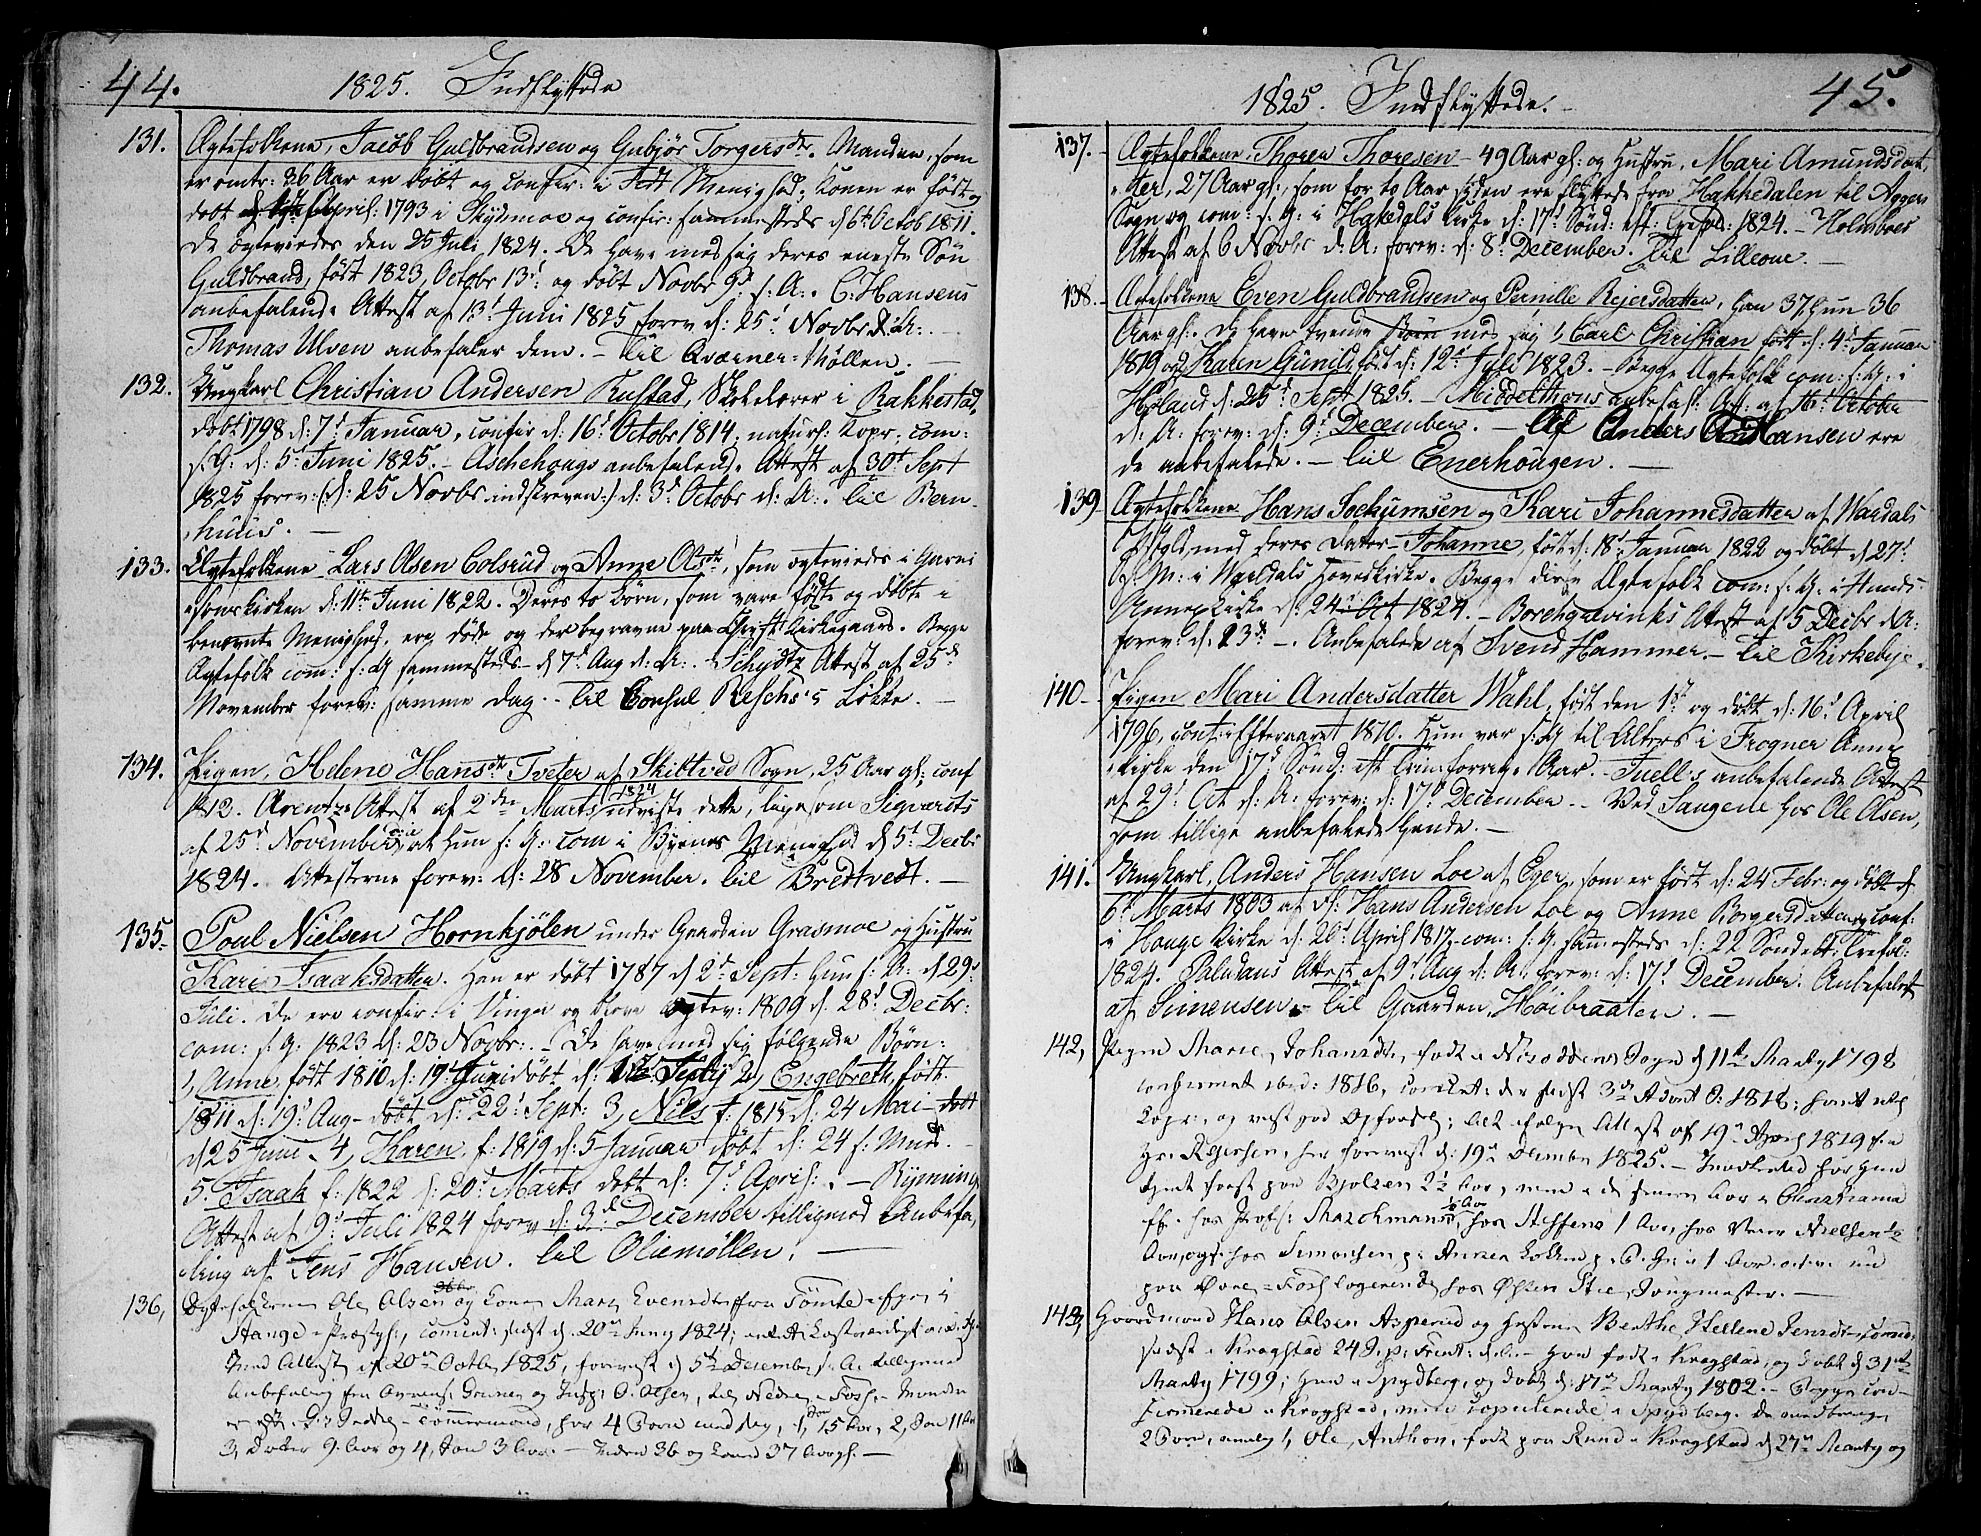 44.
1825. Indflyttede
131. Ægtefolkene, Jacob Guldbrandsen og Gubjør Torgersdtr. Manden, som
er omtr: 36 Aar er døbt og confir: i Fedt Menighed; Konen er født og
døbt April: 1793 i Skydsmoe og confir: sammesteds d: 6te Octob 1811.
De ægteviedes den 25 Juli 1824. De have med sig deres eneste Søn
Guldbrand, født 1823, Octobr 13d og døbt Novbr 9d s: A:. C: Hansens
anbefalende Attest af 13d Juni 1825 forev: d: 25d Novbr d: A:.
Thomas Ulven anbefaler dem. - Til Qværner-Møllen. -
132. Ungkarl Christian Andersen Rustad, Skolelærer i Rakkestad,
døbt 1798 d: 7d Januar, confir d: 16d Octobr 1814, naturl: Kopr, com-
s: G: d: 5d Juni 1825. - Aschehougs anbefalende Attest af 30t Sept
1825 forev: (d: 25 Novbr indskreven:) d: 3d Octobr d: A:. Til Bern-
huus. -
133. Ægtefolkene Lars Olsen Colsrud og Anne Olsdtr, som ægteviedes i Garni-
sonskirken d: 11te Juni 1822. Deres to børn, som vare fødte og døbte i
benævnte Menighed, ere døde og der begravne paa Kirkegaard. Begge
Ægtefolk com: s: G sammesteds d 7d Aug d: A:. Schydtz Attest af 25d
November forev: samme Dag. - Til Consul Reschs's Løkke. -
134. Pigen, Helene Hansdtr Tveter af Skibtved Sogn, 25 Aar gl; conf
1812. Arentz's Attest af 2den Marts 1824 udviste dette, ligesom Sigvardts
af 25d November at hun s: G: com i Byenes Menighed d 5t Decbr
1824. Attesterne forev: d: 28 November. Til Bredtvedt. -
135. Poul Nielsen Hornkjølen under Gaarden Grasmoe og Hustru
Kari Isaaksdatter. Han er døbt 1787 d 2d Sept: hun s: A: d 29d
Juli. De ere confir: i Vinger og bleve ægtev: 1809 d: 28d Decbr:
com: s: G: 1823 d: 23 Novbr:. - De have med sig følgende Børn:
1, Anne født 1810 d: 19d Juni døbt d: 2, Engebreth, født
1811 d: 19d Aug - døbt d: 22d Sept: 3, Nils f: 1815 d: 24 Mai - døbt
d 25 Juni. 4, Karen f: 1819 d: 5 Januar døbt d: 24 s: Mnd.
5. Isaak f: 1822 d: 20d Marts døbt d: 7d April:. - Rynnings
Attest af 9d Juli 1824 forev d: 3d December tilligemed Anbefa-
ling af Jens Hansen. Til Oliemøllen. -
136, Ægtefolkene Ole Olsen og Kone Mari Evensdtr fra Tømte i
Stange Præstgj:, comunic: sidst d. 20de Juny 1824;
Med Attest af 20de Octbr 1825, forevist d 5te December s. A. tilligemed
Anbefaling fra og Insp: O. Olsen, til Nedre Foss. Manden
Tømmermand, har 4 Børn med sig, 1, Søn 15 Aar, 2, Søn 11 Aar
3, Datter 9 Aar og 4, Søn 3 Aar. - Manden 36 og Konen 37 Aar gl. -
1825. Indflyttede. -
45.
137. Ægtefolkene, Thoren Thoresen - 49 Aar gl: og Hustru, Mari Amundsdat-
ter, 27 Aar gl:, som for to Aar siden ere flyttede fra Hakkedalen til Aggers
Sogn og com: s: G: i Hakedals Kirke d: 17d Sønd: eft: Trefold: 1824. - Holmboes
Attest af 6 Novbr d: A: forev: d: 8d December. Til Lilleone. -
138. Ægtefolkene Even Guldbrandsen og Pernille Rejersdatter, han 37, hun 36
Aar gl:. De have tvende Børn med sig 1, Carl Christian født d: 4d Januar
1819 og 2 Karen Gunild, født d: 12d Juli 1823. - Begge Ægtefolk com: s: G: i
Høland d: 25d Sept 1825. - Middelthons anbefal: Att: af 16d October
d: A: forev: d: 9d December. - Af Anders Hansen ere
de anbefalede. - Til Enerhougen. -
139 Ægtefolkene Hans Jochumsen og Kari Johannesdatter af Wardals
Prgld, med deres Datter - Johanne, født d: 18d Januar 1822 og døbt d 27d
s: M: i Wardals Hovedkirke. Begge disse Ægtefolk com: s: G: i Hunds
Annexkirke d: 24d Oct 1824. - Borchgrevinks Attest af 5 Decbr d: A:
forev: d. 23d -. Anbefalede af Svend Hammer. - Til Kirkebye.
140 - Pigen Mari Andersdatter Wahl, født den 1st og døbt d: 16d April
1796, conf: Efteraaret 1810. Hun var s: G til Alters i Frogner Annex
Kirke den 17d Sønd: eft Trin: forrige Aar. - Tuell's anbefalende Attest
af 29d Oct d: A: forev: d: 17d December. - Ved Saugene hos Ole Olsen,
som tillige anbefalede hende. -
141. Ungkarl, Anders Hansen Loe af Eger, som er født d: 24 Febr: og døbt d
6d Marts 1803 af Hans Andersen Loe og Anne Borgersdatter, conf:
i Houge Kirke d: 20d April 1817, com: s: G. sammesteds d: 22 Søndebt. Trefol:
1824. Paludans Attest af 9d Aug d: A: forev: d: 17d December. Anbefalet
af Simensen. Til Gaarden, Høibraaten. -
142, Pigen Marie Johansdtr, født i Nesoddens Sogn d 11te Marty 1792
confirmeret ibid: 1816, comunic: der sidst 3de Advent 1818; havt nat:
Kopr:, og vist god Opførsel; alt ifølge Attest af 19de April 1819 fra
Hr. Rejersen, her forevist d: 19de December 1825. - Imidlertid har hun
tjent først paa Bjølsen 2½ Aar,
hos Prof: Marchmann ½ Aar, hos Steffens 1 Aar, hos Nielsen
hos Simonsen 1 Aar nu
paa Øvre-Foss logerende hos Østen Stie, Sougmester. -
143, Gaardmand Hans Olsen Asperud og Hustrue Berthe Hellene Jensdtr,
sidst i Kragstad han født i Kragstad, og døbt d 31te
Marty 1799; hun i Spydberg, og døbt d: 17de Marty 1802. - Begge con-
firmerede i Kragstad, men copulerede i Spydberg. De medbringe
2 Børn, nemlig 1, Ole Anthon, født paa Rund i Kragstad d 27de Marty og